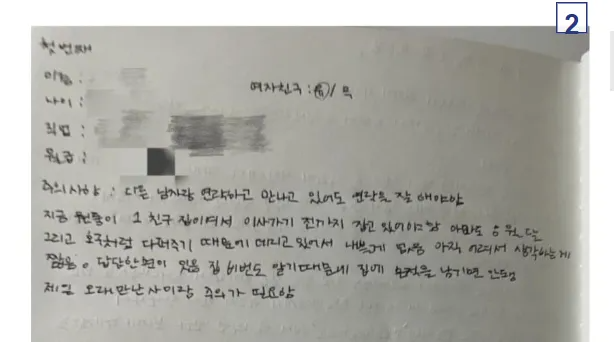 2
첫번째
이름 :
여자친구 : 유 / 무
나이 :
직업 :
월급 :
주의사항 : 다른 남자랑 연락하고 만나고 있어도 연락을 잘 해야함
지금 원룸이 그 친구 집이여서 이사가기 전까지 잡고 있어야함 아마도
그리고 호구처럼 다퍼주기 때문에 데리고 있어서 나쁠게 없음 아직 어려서 생각하는게
짧음. 답답한면이 있음 집 비번도 알기때문에 집에 흔적을 남기면 안됨
제일 오래만난 사이라 주의가 필요함